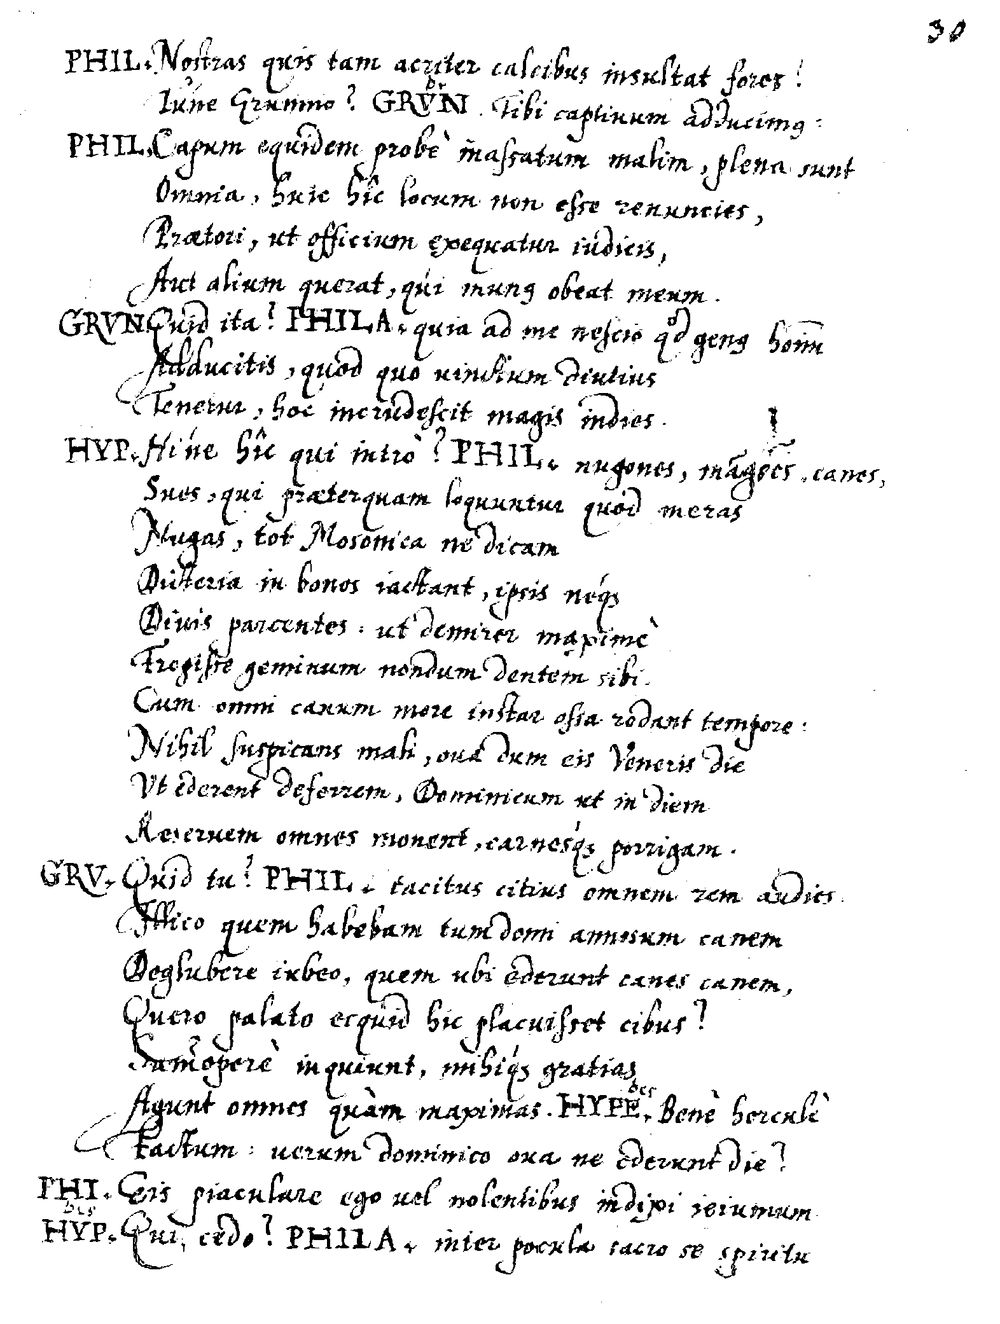 30
PHIL. Nostras quis tam acriter calcibus insultat fores?
Tu'ne Grunnio? GRVN. Tibi captiuum adducimus:
PHIL. Capum equidem probè inassatum malim, plena sunt
Omnia, huic hîc locum non esse renuncies,
Prætori, ut officium exequatur iudicis,
Aut alium querat, qui munus obeat meum.
GRVN. Quid ita? PHILA. quia ad me nescio qd genus hoim
Adducitis, quod quo uinctum diutius
Tenetur, hoc incrudescit magis indies.
HYP. Hi'ne hîc qui intrò? PHIL. nugones, canes,
Sues, qui præterquam loquuntur quòd meras
Nugas, tot Mosonica ne dicam
Dicteria in bonos iactant, ipsis neq;
Diuis parcentes: ut demirer maximè
Fregisse geminum nondum dentem sibi.
Cum omni canum more instar ossa rodant tempore:
Nihil suspicans mali, oua dum eis Veneris die
Vt ederent deferrem, Dominicum ut in diem
Reseruem omnes monent, carnesq; porrigam.
GRV. Quid tu? PHIL. tacitus citius omnem rem audies.
Illico quem habebam tum domi annosum canem
Deglubere iubeo, quem ubi ederunt canes canem,
Quero palato ecquid hic placuisset cibus?
inquiunt, mihiq; gratias
Agunt omnes quàm maximas. HYPE. Benè herculè
Factum: uerum dominico oua ne ederunt die?
PHI. Eis piaculare ego uel nolentibus indixi ieiunium
HYP. Qui, cedo? PHILA. inter pocula sacro se spiritu